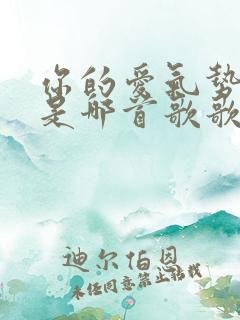 你的愛氣勢
是哪首歌歌
迪尔伯恩
未经同意禁止转载